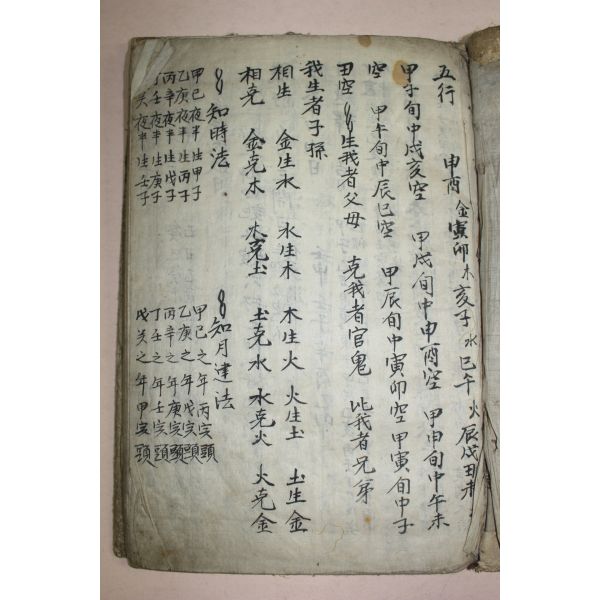 五行 申酉金寅卯木亥子水巳午火辰戌丑未
甲子旬中戌亥空 甲戌旬中申酉空 甲申旬中午未
空 甲午旬中辰巳空 甲辰旬中寅卯空 甲寅旬中子
丑空 生我者父母 克我者官鬼 比我者兄弟
我生者子孫
相生 金生水 水生木 木生火 火生土 土生金
相克 金克木 木克土 土克水 水克火 火克金
知時法
甲己夜半生甲子
乙庚夜半生丙子
丙辛夜半生戊子
丁壬夜半生庚子
戊癸夜半生壬子
知月建法
甲己之年丙寅頭
乙庚之年戊寅頭
丙辛之年庚寅頭
丁壬之年壬寅頭
戊癸之年甲寅頭